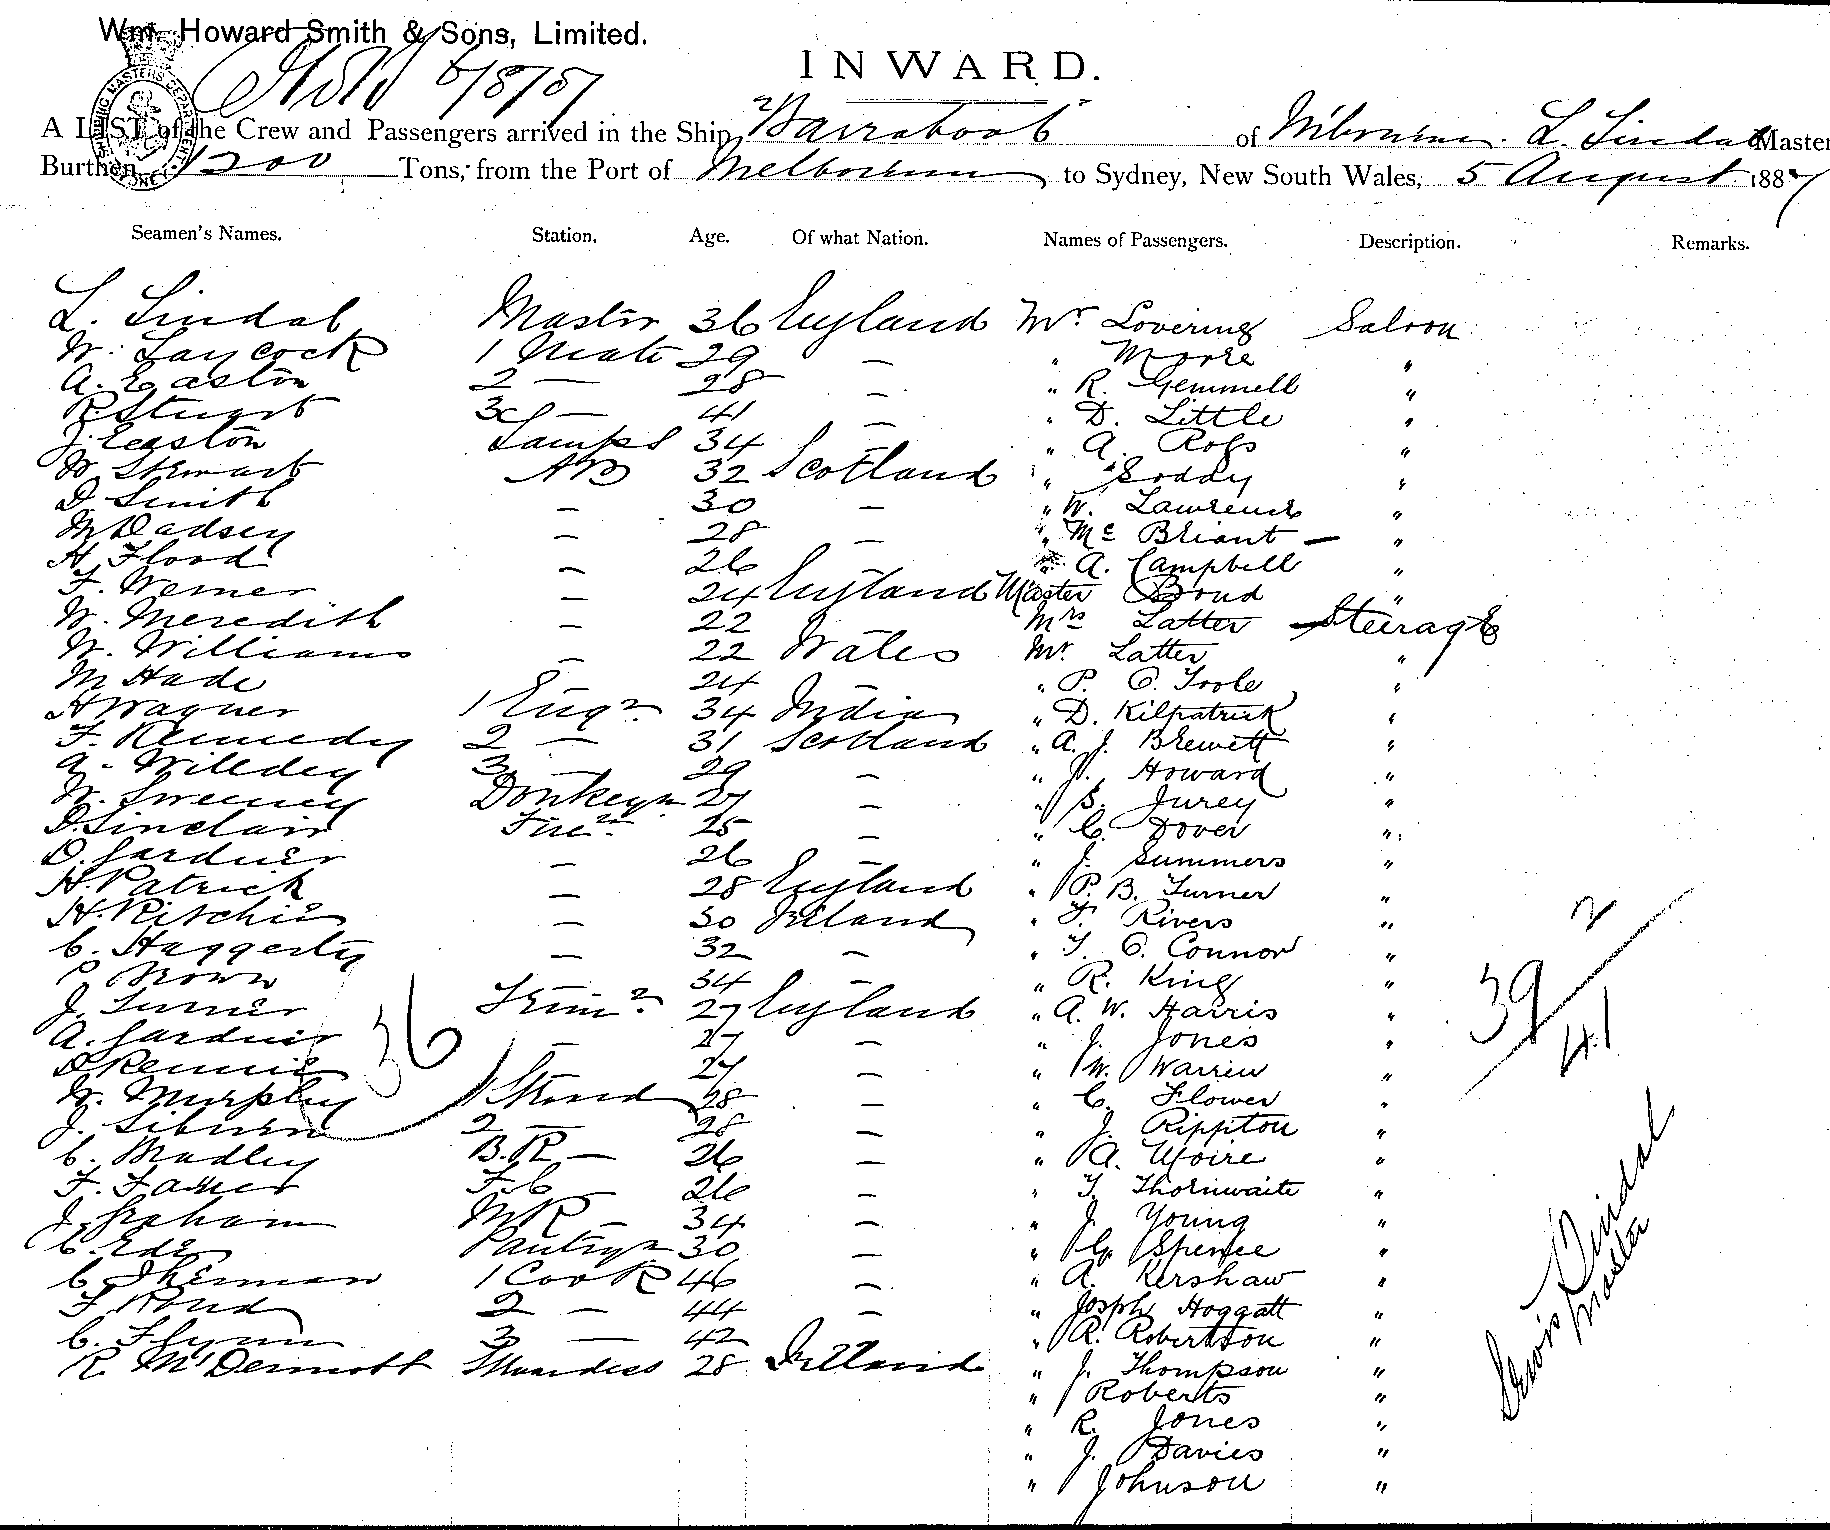 Wm. Howard Smith & Sons, Limited.
INWARD.
A LIST of the Crew and Passengers arrived in the Ship "Barrabool" of Melbourne. L. Lindal Master
Burthen 1200 Tons, from the Port of Melbourne to Sydney, New South Wales, 5 August 1887
Seamen's Names. Station. Age. Of what Nation. Names of Passengers. Description. Remarks.
L. Lindal Master 36 England Mr Lovering Saloon
W. Laycock 1 Mate 29 — " Moore "
A. Easton 2 — 28 — " R. Gemmell "
R Stuart 3 — 41 — " D. Little "
J. Easton Lamps 34 " A. Ross "
W. Stewart AB 32 Scotland " Soddy "
D. Smith — 30 — " W. Lawrence "
M Dadsey — 28 — " Mc Briant — "
H. Flood — 26 " A. Campbell "
F. Werner — 24 England Master Bond "
W. Meredith — 22 Mrs Latter Steerage
W. Williams — 22 Wales Mr Latter "
M Hade 24 — " P. O. Toole "
H Wagner 1 Engr. 34 India " D. Kilpatrick "
F. Kennedy 2 — 31 Scotland " A. J. Brewett "
A. Willdey 3 — 29 — " J. Howard "
W. Sweeney Donkeyn 27 — " S. Jurey "
D. Sinclair Firen 25 — " C. Dover "
D. Gardner — 26 — " J. Summers "
H. Patrick — 28 England " P. B. Turner "
H. Ritchie — 30 Ireland " F. Rivers "
C. Haggerty — 32 — " T. O. Connor "
P Brown 34 — " R. King "
J. Turner Trimr 27 England " A. W. Harris "
A. Gardner — 27 — " J. Jones "
D Rennie 27 — " W. Warren "
W. Murphy 1 Steward 28 — " C. Flower "
J. 2 — 28 — " J. Rippton "
C. Bradley B.R — 26 — " A. Moire "
F. F.C — 26 " T. Thornwaite "
J. Graham M R — 34 — " J. Young "
C. Ede Pantryn 30 — " G. Spence "
C. Sherman 1 Cook 46 — " A. Kershaw "
F Rond 2 — 44 — " Josph Hoggatt "
C. Flynn 3 — 42 " R. Robertson "
R. McDermott Stewardess 28 Ireland " J. Thompson "
" Roberts "
" R. Jones "
" J. Davies "
" Johnson "
36
2
39
41
Lewis Lindal
Master